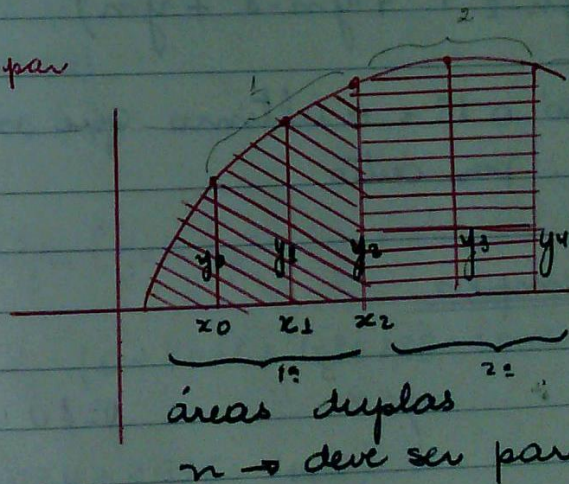 2
par
1
y0 y1 y2 y3 y4
x0 x1 x2
1ª 2ª
áreas duplas
n → deve ser par